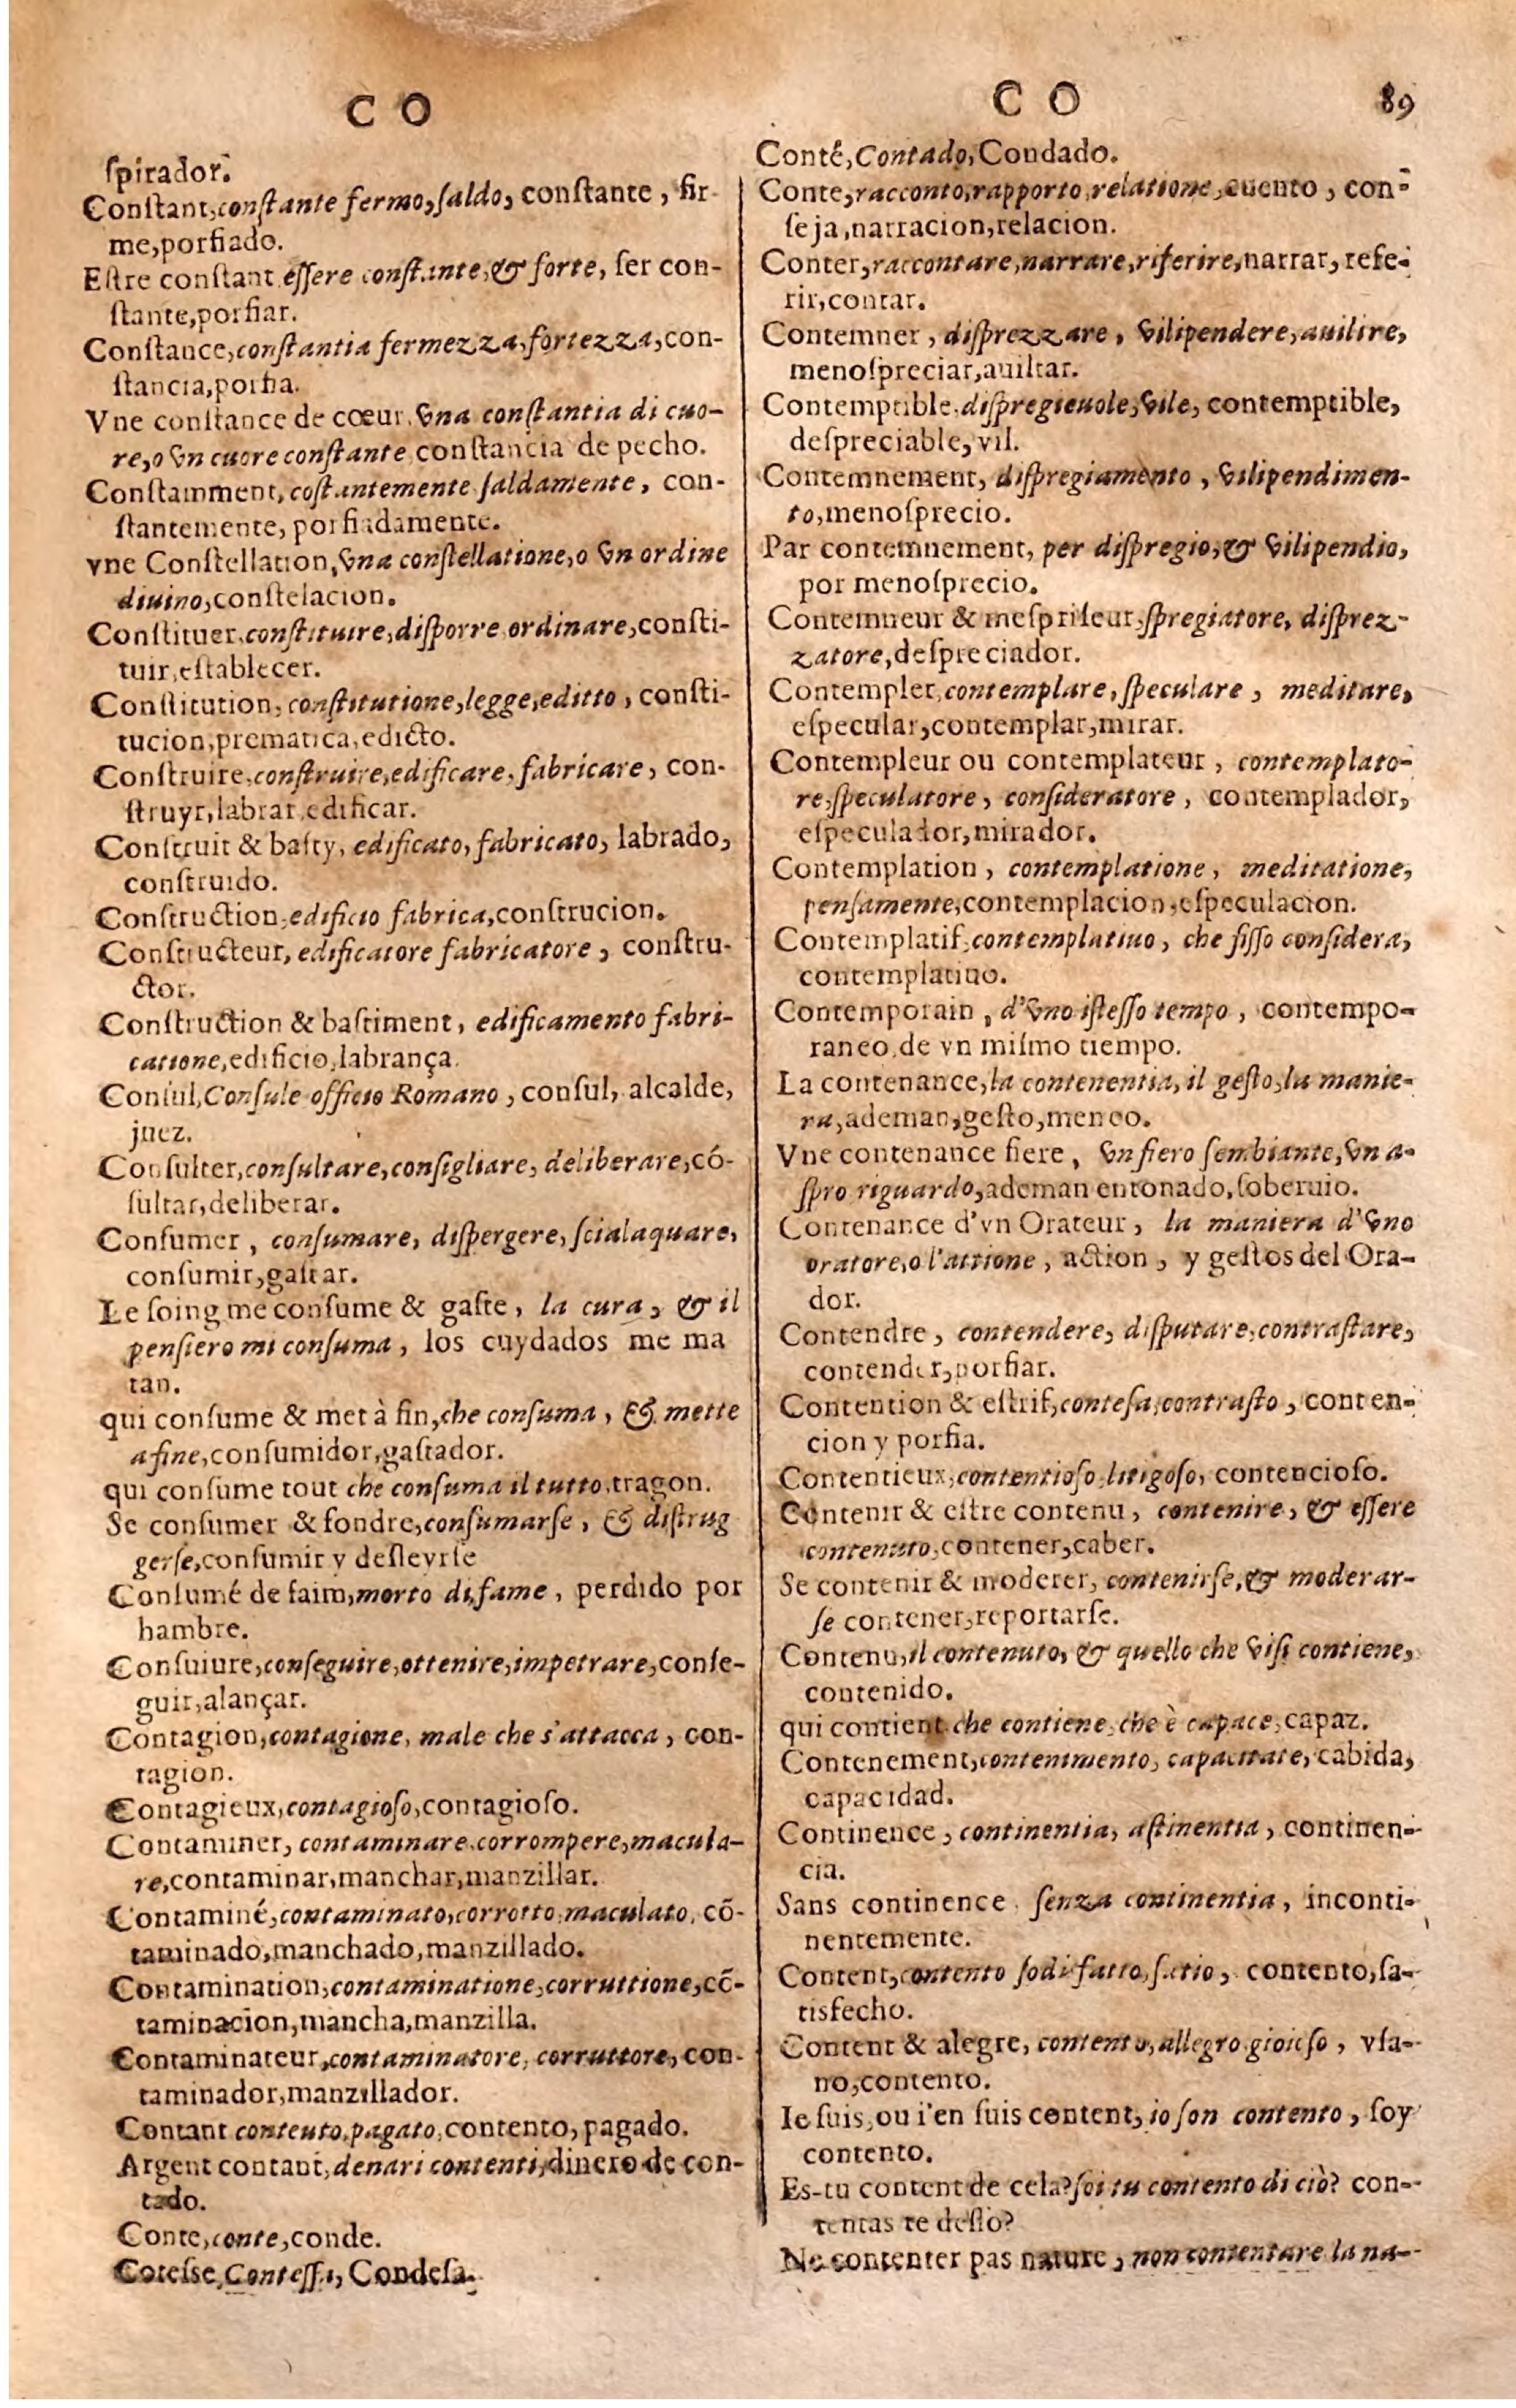 C O
ſpirador.
Conſtant, conſtante fermo, ſaldo, conſtante, fir
me, porfiado.
Eſtre conſtant eſſere conſtante, & forte, ſer con-
ſtante, porfiar.
Conſtance, conſtantia fermezza, fortezza, con-
ſtancia, porfia.
Vne conſtance de cœur, vna conſtantia di cuo-
re, o vn cuore conſtante conſtancia de pecho.
Conſtamment, coſtantemente ſaldamente, con-
ſtantemente, porfiadamente.
vne Conſtellation, vna conſtellatione, o vn ordine
diuino, conſtelacion.
Conſtituer, conſtituire, diſporre ordinare, conſti-
tuir, eſtablecer.
Conſtitution, conſtitutione, legge, editto, conſti-
tucion, prematica, edicto.
Conſtruire, conſtruire, edificare, fabricare, con-
ſtruyr, labrar edificar.
Conſtruit & baſty, edificato, fabricato, labrado,
conſtruido.
Conſtruction, edificio fabrica, conſtrucion.
Conſtructeur, edificatore fabricatore, conſtru-
ctor.
Conſtruction & baſtiment, edificamento fabri-
catione, edificio, labrança.
Conſul, Conſule officio Romano, conſul, alcalde,
juez.
Conſulter, conſultare, conſigliare, deliberare, có-
ſultar, deliberar.
Conſumer, conſumare, diſpergere, ſcialaquare,
conſumir, gaſtar.
Le ſoing me conſume & gaſte, la cura, & il
penſiero mi conſuma, los cuydados me ma
tan.
qui conſume & met à fin, che conſuma, & mette
a fine, conſumidor, gaſtador.
qui conſume tout che conſuma il tutto, tragon.
Se conſumer & fondre, conſumarſe, & diſtrug
gerſe, conſumir y desleyrſe
Conſumé de faim, morto di fame, perdido por
hambre.
Conſuiure, conſeguire, ottenire, impetrare, conſe-
guir, alançar.
Contagion, contagione, male che s'attacca, con-
tagion.
Contagieux, contagioſo, contagioſo.
Contaminer, contaminare, corrompere, macula-
re, contaminar, manchar, manzillar.
Contaminé, contaminato, corrotto, maculato, cō-
taminado, manchado, manzillado.
Contamination, contaminatione, corruttione, cō-
taminacion, mancha, manzilla.
Contaminateur, contaminatore, corruttore, con-
taminador, manzillador.
Contant contento, pagato, contento, pagado.
Argent contant, denari contenti, dinero de con-
tado.
Conte, conte, conde.
Coteſſe, Conteſſa, Condeſa.
C O
89
Conté, Contado, Condado.
Conte, racconto, rapporto, relatione, cuento, con-
ſeja, narracion, relacion.
Conter, raccontare, narrare, riferire, narrar, refe-
rir, contar.
Contemner, diſprezzare, vilipendere, auilire,
menoſpreciar, auiltar.
Contemptible, diſpregieuole, vile, contemptible,
deſpreciable, vil.
Contemnement, diſpregiamento, vilipendimen-
to, menoſprecio.
Par contemnement, per diſpregio, & vilipendio,
por menoſprecio.
Contemneur & meſpriſeur, ſpregiatore, diſprez-
zatore, deſpreciador.
Contempler, contemplare, ſpeculare, meditare,
eſpecular, contemplar, mirar.
Contempleur ou contemplateur, contemplato-
re, ſpeculatore, conſideratore, contemplador,
eſpeculador, mirador.
Contemplation, contemplatione, meditatione,
penſamente, contemplacion, eſpeculacion.
Contemplatif, contemplatiuo, che fiſſo conſidera,
contemplatiuo.
Contemporain, d'vno iſteſſo tempo, contempo-
raneo, de vn miſmo tiempo.
La contenance, la contenentia, il geſto, la manie-
ra, ademan, geſto, meneo.
Vne contenance fiere, vn fiero ſembiante, vn a-
ſpro riguardo, ademan entonado, ſoberuio.
Contenance d'vn Orateur, la maniera d'vno
oratore, o l'attione, action, y geſtos del Ora-
dor.
Contendre, contendere, diſputare, contraſtare,
contender, porfiar.
Contention & eſtrif, conteſa, contraſto, conten-
cion y porfia.
Contentieux, contentioſo, litigoſo, contencioſo.
Contenir & eſtre contenu, contenire, & eſſere
contenuto, contener, caber.
Se contenir & moderer, contenirſe, & moderar-
ſe contener, reportarſe.
Contenu, il contenuto, & quello che viſi contiene,
contenido.
qui contient che contiene, che è capace, capaz.
Contenement, contenimento, capacitate, cabida,
capacidad.
Continence, continentia, aſtinentia, continen-
cia.
Sans continence, ſenza continentia, inconti-
nentemente.
Content, contento ſodisfatto, ſatio, contento, ſa-
tisfecho.
Content & alegre, contento, allegro gioioſo, vfa-
no, contento.
Ie ſuis, ou i'en ſuis content, io ſon contento, ſoy
contento.
Es-tu content de cela? ſoi tu contento di ciò? con-
tentas te deſſo?
Ne contenter pas nature, non contentare la na-